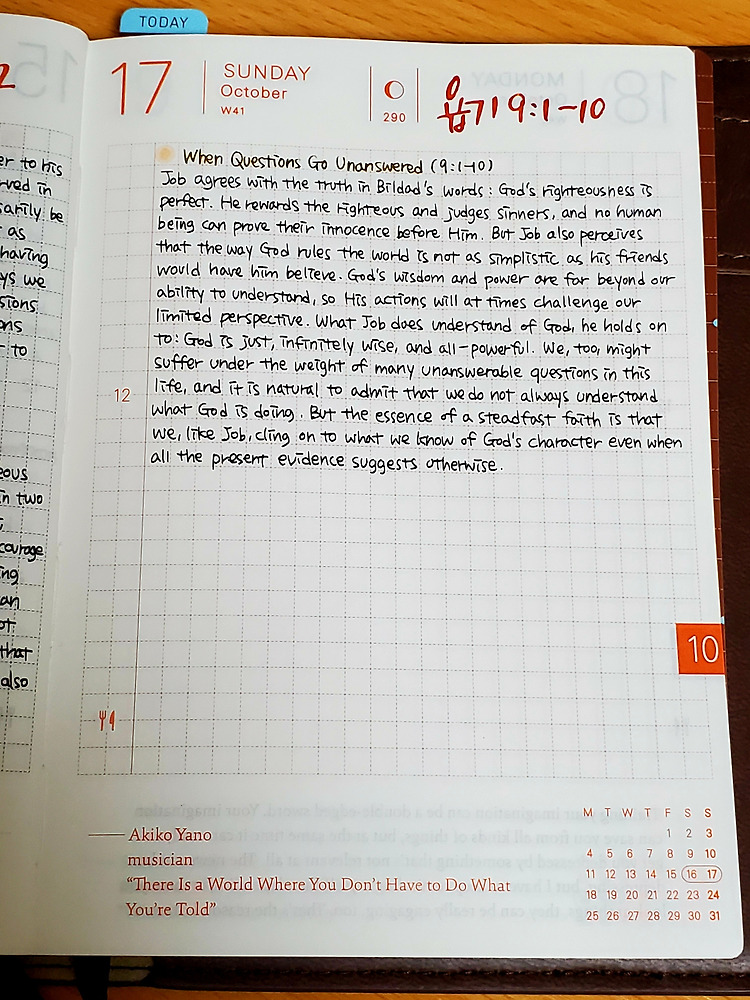 TODAY
17
SUNDAY
October
W41
290
욥기 9:1-10
When Questions Go Unanswered (9:1-10)
Job agrees with the truth in Bildad's words: God's righteousness is
perfect. He rewards the righteous and judges sinners, and no human
being can prove their innocence before Him. But Job also perceives
that the way God rules the world is not as simplistic as his friends
would have him believe. God's wisdom and power are far beyond our
ability to understand, so His actions will at times challenge our
limited perspective. What Job does understand of God, he holds on
to: God is just, infinitely wise, and all-powerful. We, too, might
suffer under the weight of many unanswerable questions in this
life, and it is natural to admit that we do not always understand
what God is doing. But the essence of a steadfast faith is that
we, like Job, cling on to what we know of God's character even when
all the present evidence suggests otherwise.
12
10
Akiko Yano
musician
"There Is a World Where You Don't Have to Do What
You're Told"
M T W T F S S
1 2 3
4 5 6 7 8 9 10
11 12 13 14 15 16 17
18 19 20 21 22 23 24
25 26 27 28 29 30 31
er to his
rved in
sarily be
as
having
ys we
sions
ons
to
eous
in two
courage
ing
an
ot
that
also